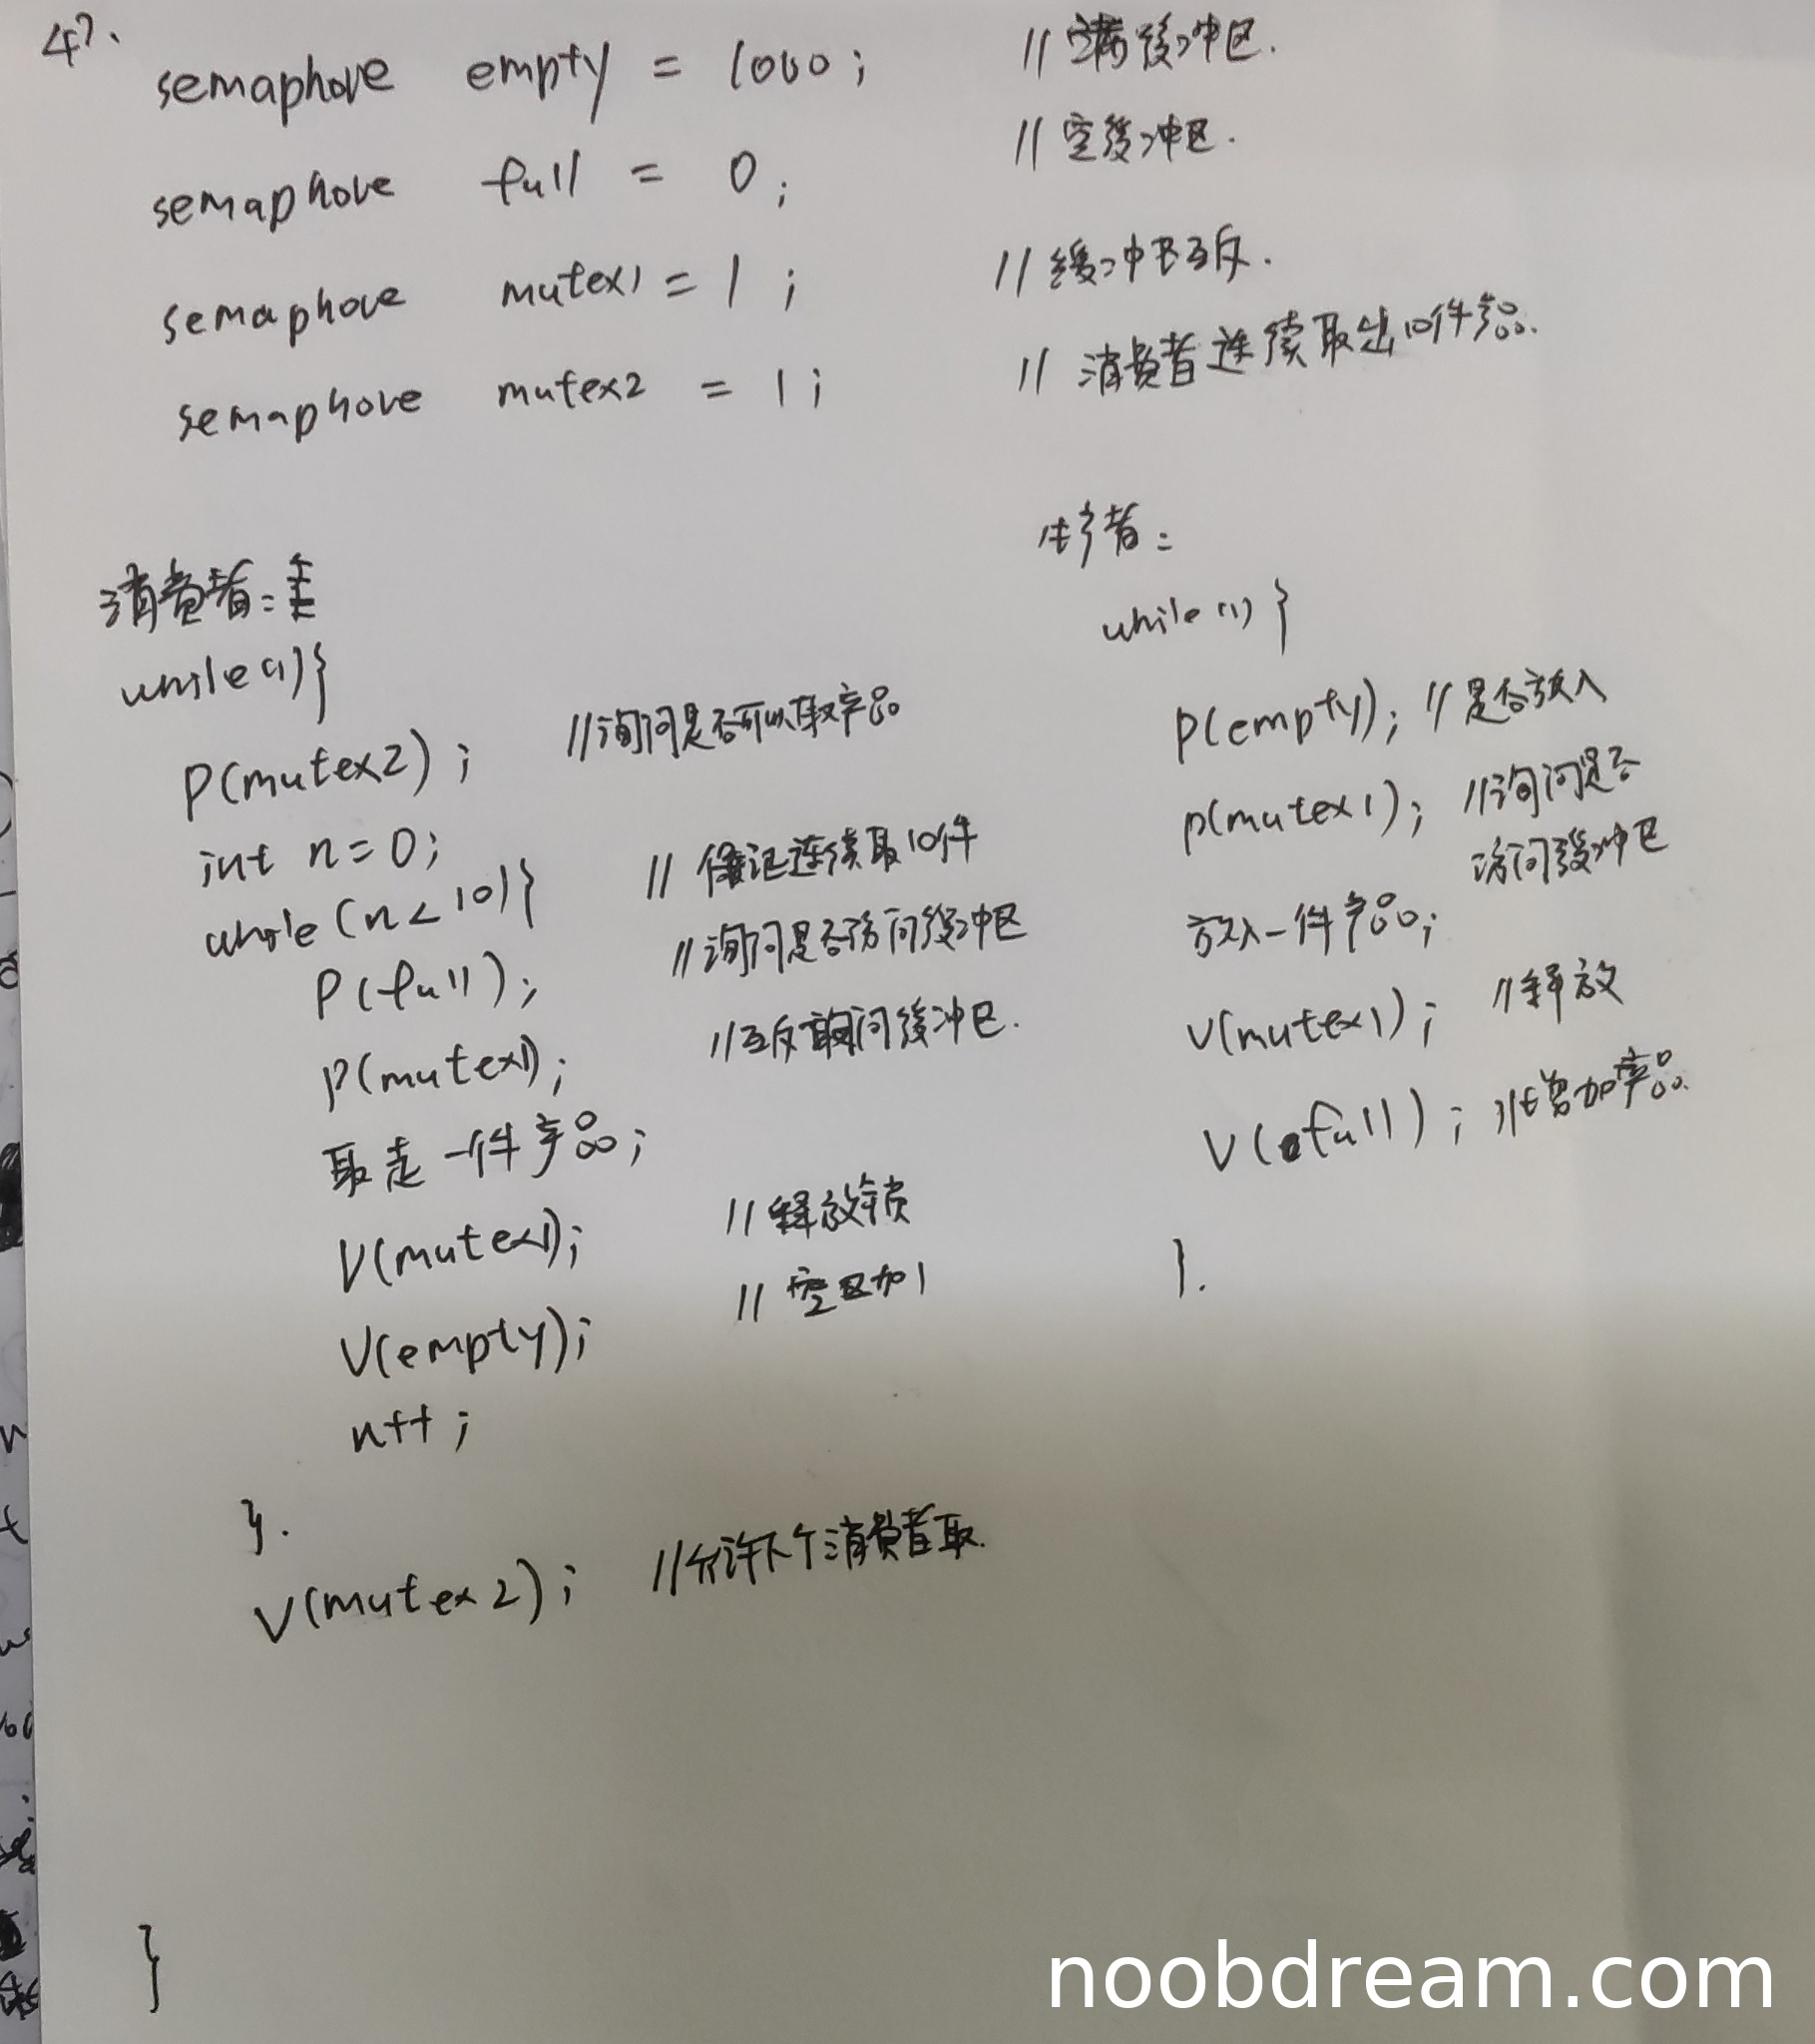 47.
semaphore empty = 1000; // 满缓冲区.
semaphore full = 0; // 空缓冲区.
semaphore mutex1 = 1; // 缓冲区互斥.
semaphore mutex2 = 1; // 消费者连续取出10件产品.
消费者:
while(1){
P(mutex2); //询问是否可以取产品
int n=0;
while(n<10){ // 保证连续取10件
P(full); //询问是否访问缓冲区
P(mutex1); //互斥访问缓冲区.
取走一件产品;
V(mutex1); //释放锁
V(empty); // 空区加1
n++;
}.
V(mutex2); //允许下个消费者取.
}
生产者:
while(1){
P(empty); //是否放入
P(mutex1); //询问是否
访问缓冲区
放入一件产品;
V(mutex1); //释放
V(full); //增加产品.
}.
noobdream.com